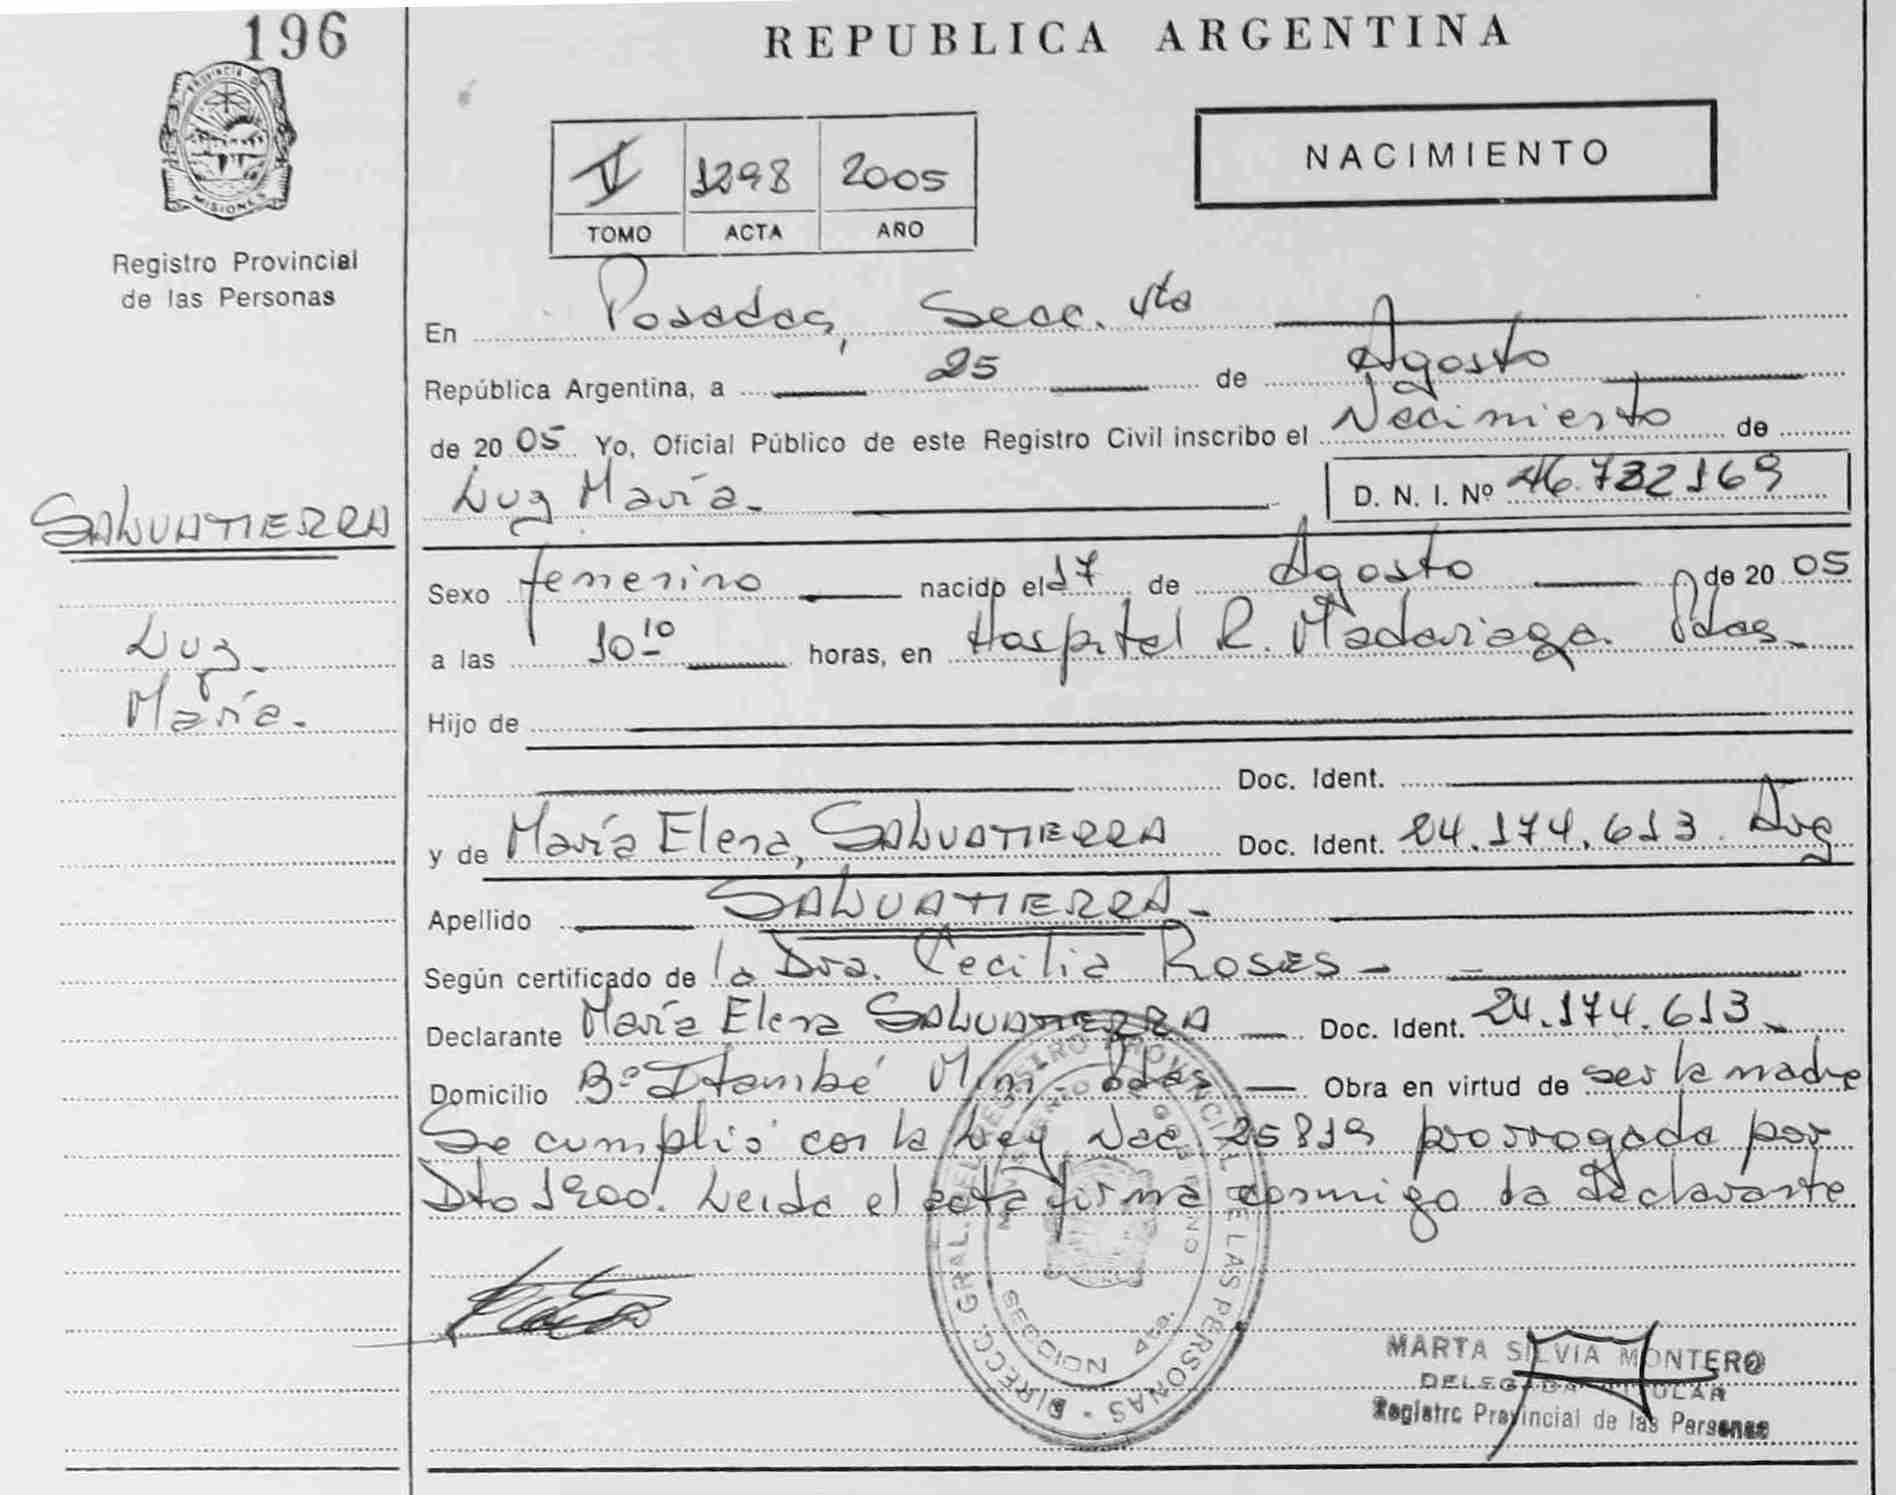 196
REPUBLICA ARGENTINA
PROVINCIA DE
MISIONES
Registro Provincial
de las Personas
1298 2005
TOMO ACTA AÑO
NACIMIENTO
En Posadas, Secc. 4ta
República Argentina, a 25 de Agosto
de 2005 Yo, Oficial Público de este Registro Civil inscribo el Nacimiento de
Luz María.
D. N. I. Nº 46.732169
SALVATIERRA
Luz
María.
Sexo femenino nacido el 17 de Agosto de 2005
a las 10 10 horas, en Hospital R. Madariaga. Pdas.
Hijo de
Doc. Ident.
y de María Elena, SALVATIERRA Doc. Ident. 24.174.613. Arg
Apellido SALVATIERRA.
Según certificado de la Dra. Cecilia Roses
Declarante María Elena SALVATIERRA Doc. Ident. 24.174.613.
Domicilio Bº Itambé Mini. Pdas Obra en virtud de ser la madre
Se cumplió con la Ley Nac 25819 prorrogada por
Dto 1900. Leida el acta firma conmigo la declarante
DIRECC. GRAL. DEL REGISTRO PROVINCIAL DE LAS PERSONAS
MINISTERIO DE GOBIERNO
SECCION 4ta.
MARTA SILVIA MONTERO
DELEGADA TITULAR
Registro Provincial de las Personas